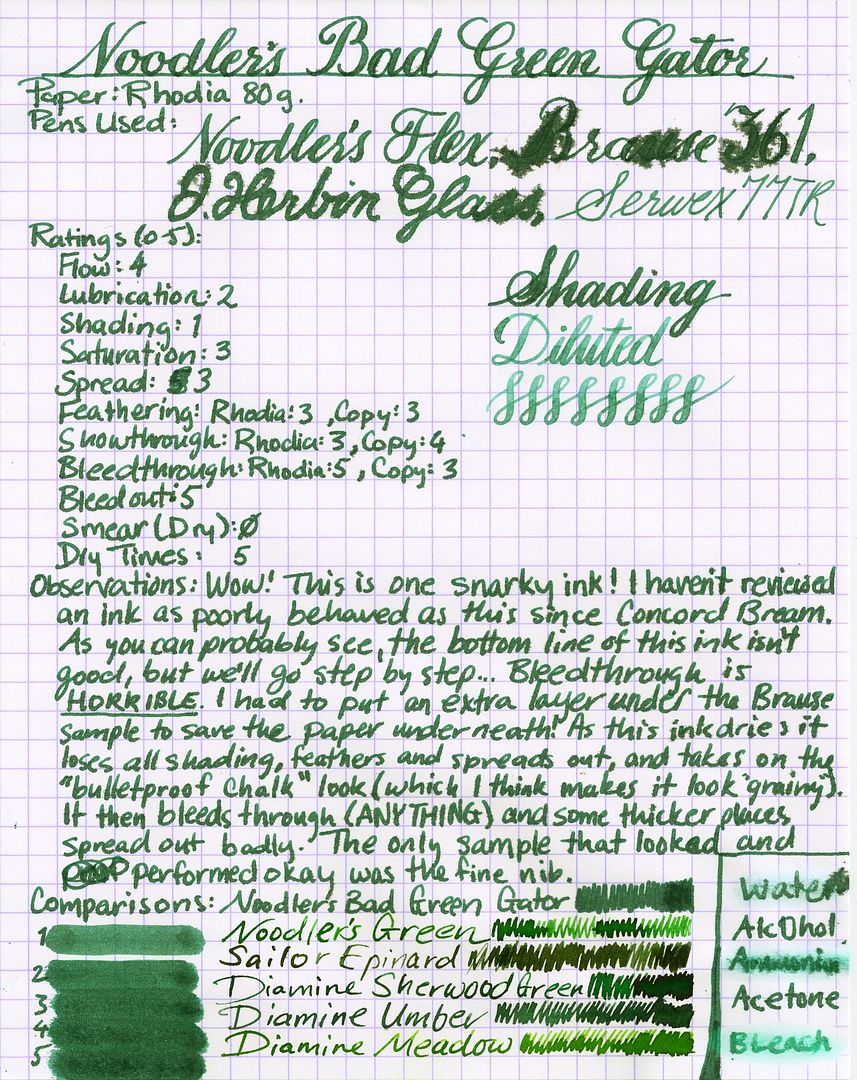 Noodler's Bad Green Gator
Paper: Rhodia 80g.
Pens Used:
Noodler's Flex, Brause 361,
J. Herbin Glass, Serwex 77TR
Ratings (0-5):
Flow: 4
Lubrication: 2
Shading: 1
Saturation: 3
Spread: 3
Feathering: Rhodia: 3, Copy: 3
Showthrough: Rhodia: 3, Copy: 4
Bleedthrough: Rhodia: 5, Copy: 3
Bleedout: 5
Smear (Dry): Ø
Dry Times: 5
Shading
Diluted
Observations: Wow! This is one snarky ink! I haven't reviewed
an ink as poorly behaved as this since Concord Bream.
As you can probably see, the bottom line of this ink isn't
good, but we'll go step by step... Bleedthrough is
HORRIBLE. I had to put an extra layer under the Brause
sample to save the paper underneath! As this ink dries it
loses all shading, feathers and spreads out, and takes on the
"bulletproof chalk" look (which I think makes it look "grainy").
It then bleeds through (ANYTHING) and some thicker places
spread out badly. The only sample that looked and
performed okay was the fine nib.
Comparisons: Noodler's Bad Green Gator
Noodler's Green
Sailor Epinard
Diamine Sherwood Green
Diamine Umber
Diamine Meadow
1
2
3
4
5
Water
Alcohol
Ammonia
Acetone
Bleach